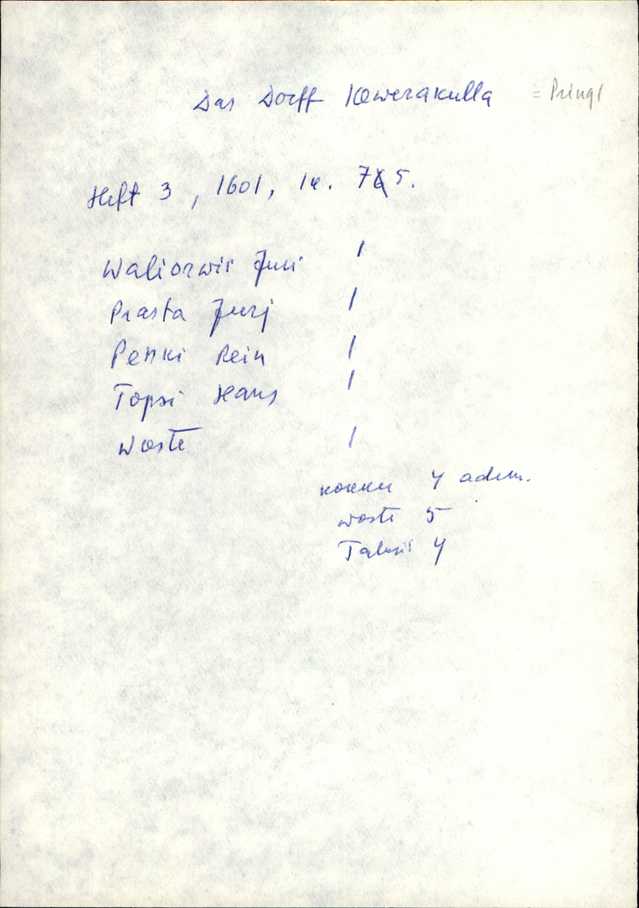 Das Dorff Kawerakulla = Pringi
Heft 3, 1601, lk. 75.
Waliorwis Juri 1
Prasta Jurj 1
Penki Rein 1
Topsi Hans 1
Woste 1
kokku 4 adem.
woste 5
Talusi 4